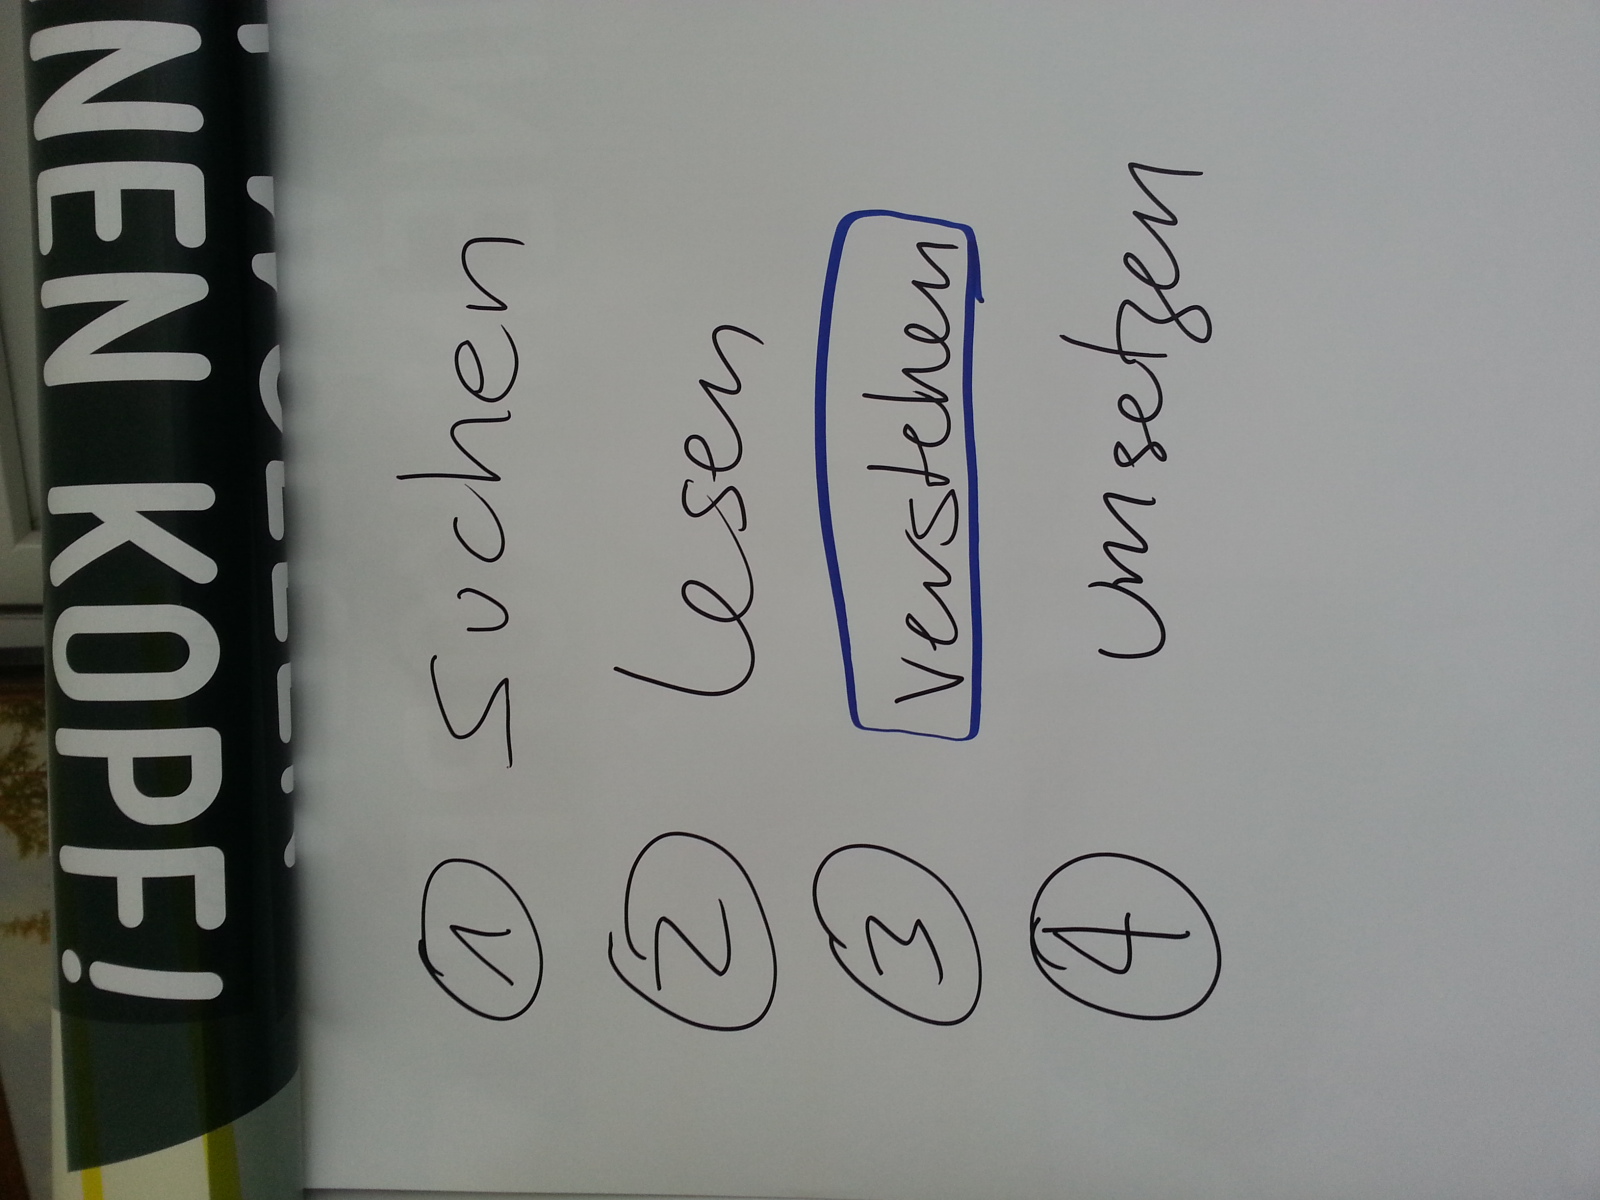 NEN KOPF!
1 suchen
2 lesen
3 verstehen
4 umsetzen